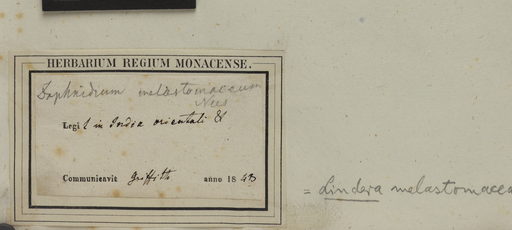 HERBARIUM REGIUM MONACENSE.
Daphnidium melastomaceum
Nees
Legi in India orientali
Communicavit Griffith anno 1843
= Lindera melastomacea